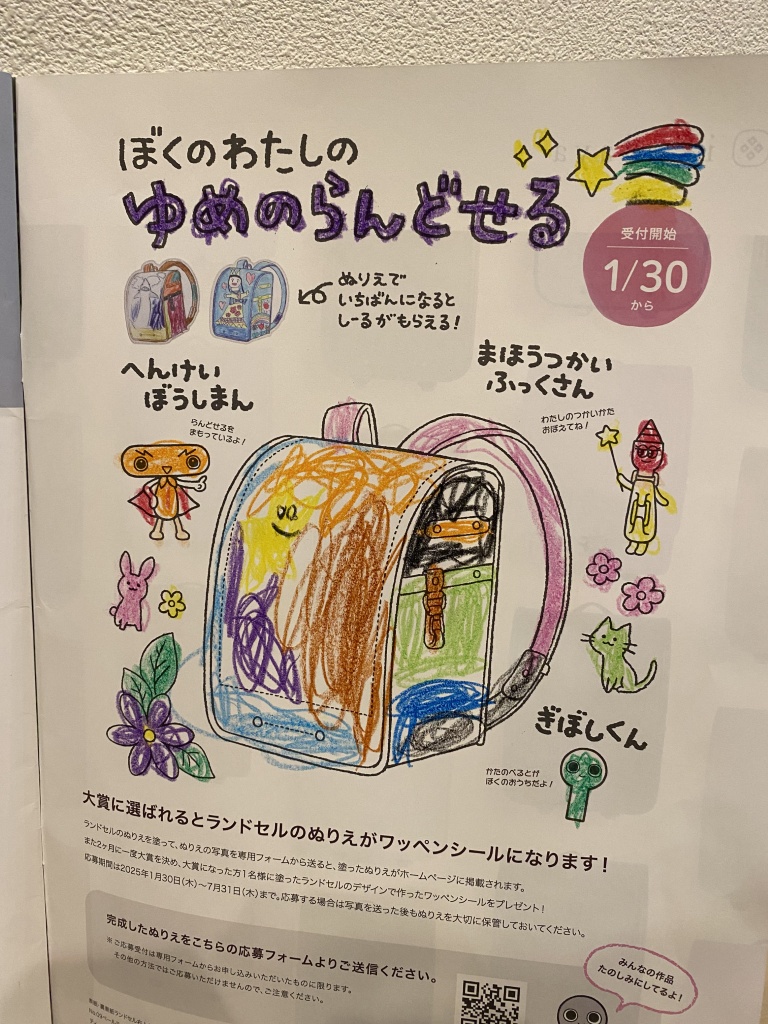 ぼくのわたしの
ゆめのらんどせる
受付開始
1/30
から
ぬりえで
いちばんになると
しーるがもらえる!
へんけい
ぼうしまん
らんどせるを
まもっているよ!
まほうつかい
ふっくさん
わたしのつかいかた
おぼえてね!
ぎぼしくん
かたのべるとが
ぼくのおうちだよ!
大賞に選ばれるとランドセルのぬりえがワッペンシールになります!
ランドセルのぬりえを塗って、ぬりえの写真を専用フォームから送ると、塗ったぬりえがホームページに掲載されます。
また2ヶ月に一度大賞を決め、大賞になった方1名様に塗ったランドセルのデザインで作ったワッペンシールをプレゼント!
応募期間は2025年1月30日(木)〜7月31日(木)まで。応募する場合は写真を送った後もぬりえを大切に保管しておいてください。
完成したぬりえをこちらの応募フォームよりご送信ください。
※ご応募受付は専用フォームからお申し込みいただいたものに限ります。
その他の方法ではご応募いただけませんので、ご注意ください。
みんなの作品
たのしみにしてるよ!